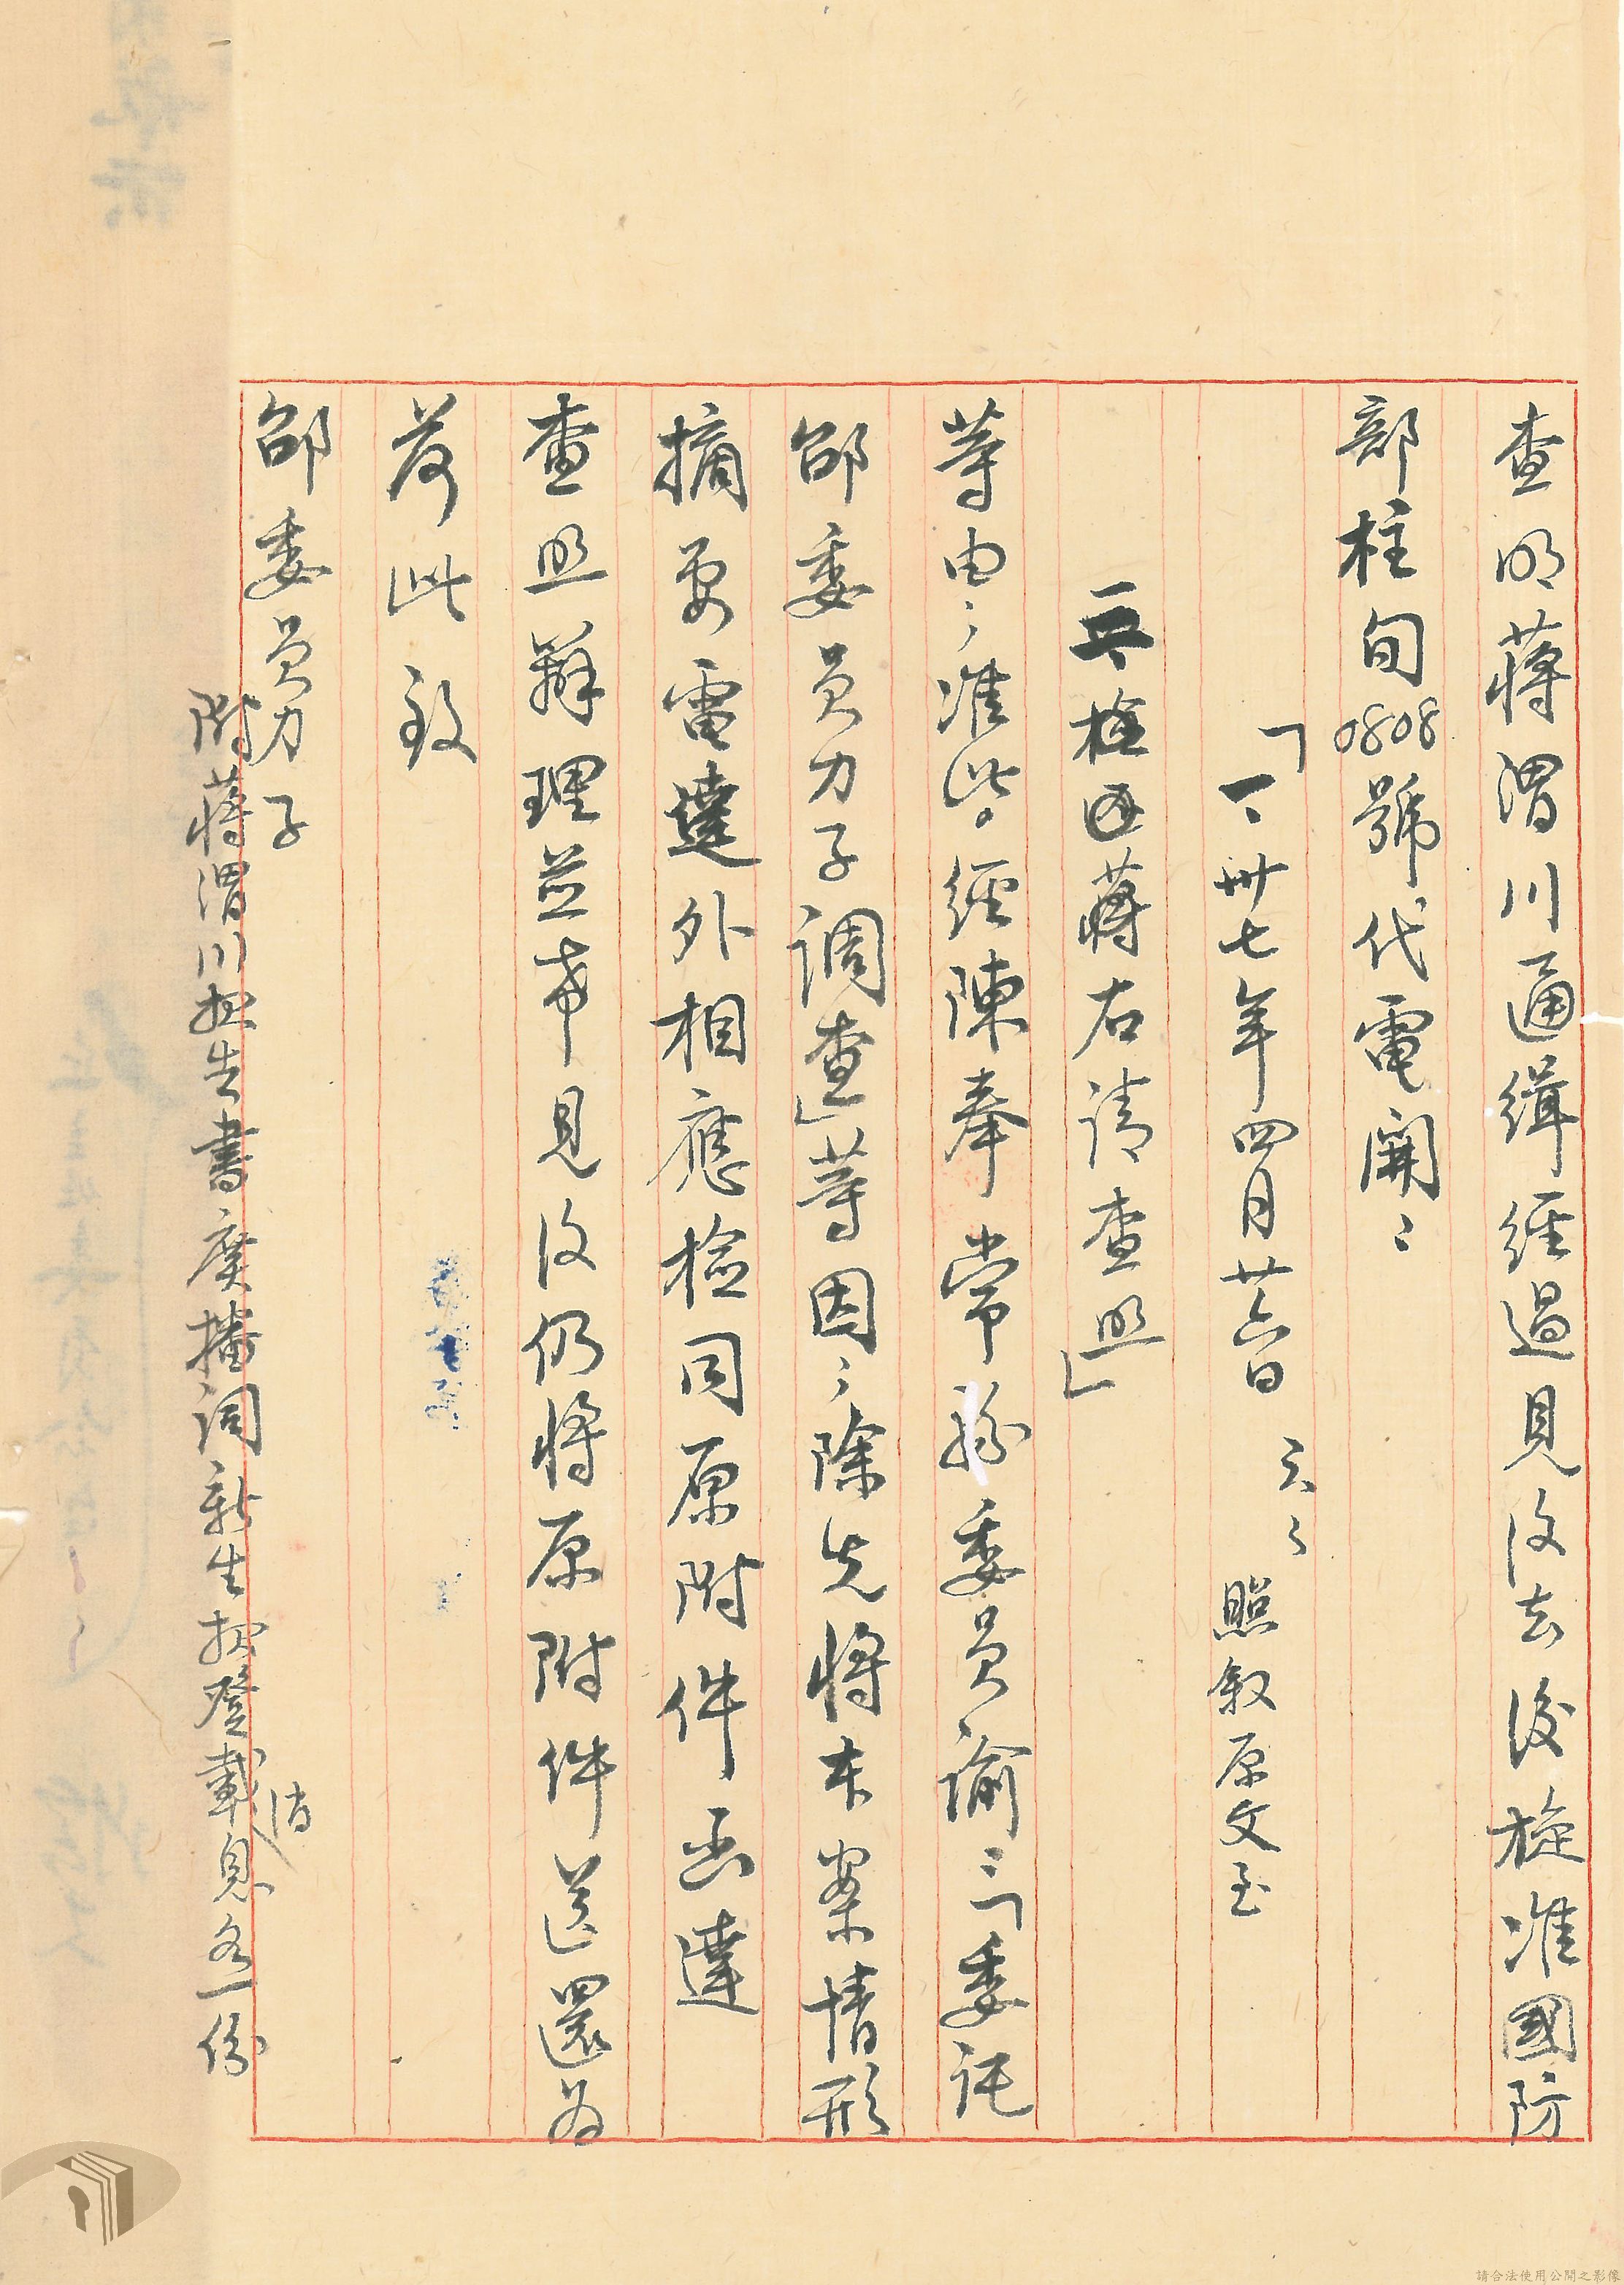 查明蔣渭川通緝經過見復去後旋准國防
部柱旬0808號代電開：
「一、卅七年四月廿六日云云照叙原文至
五、檢送蔣右請查照」
等由；准此。經陳奉常務委員諭：「委託
邵委員力子調查」等因；除先將本案情形
摘要電達外相應檢同原附件函達
查照辦理並希見復仍將原附件送還為
荷此致
邵委員力子
附蔣渭川報告書廣播詞新生報登載消息各一份
請合法使用公開之影像